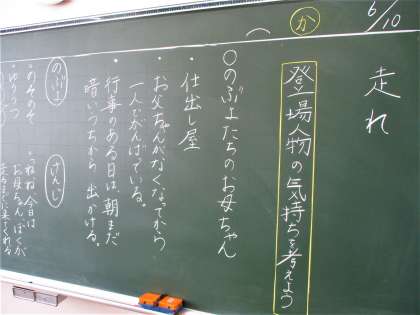 6/10
走れ
か
登場人物の気持ちを考えよう
○のぶよたちのお母ちゃん
・仕出し屋
・お父ちゃんがなくなってから
一人でがんばっている。
・行事のある日は、朝まだ
暗いうちから出かける。
のぶよ
・のそのそ
ゆううつ
けんじ
・ねえね、今日は
お母ちゃん、ぼくが
走るまでに来てくれる